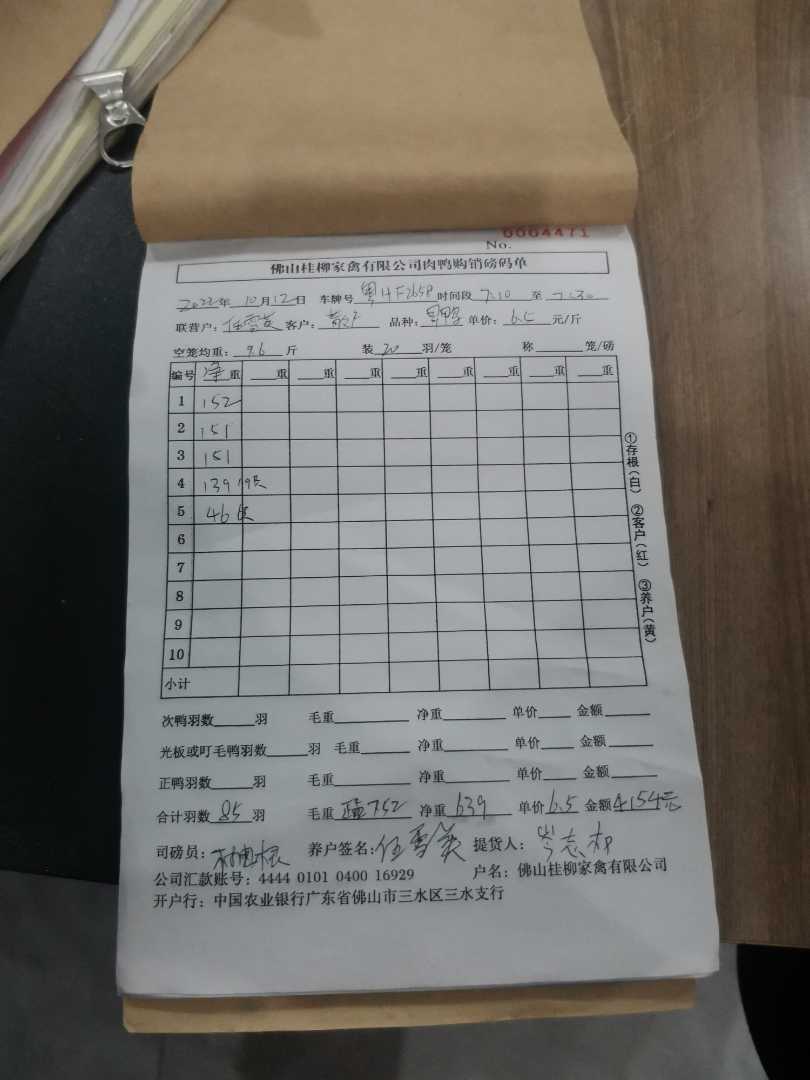 No. 0004471
佛山桂柳家禽有限公司肉鸭购销磅码单
2022年 10月12日 车牌号 粤HF265P 时间段 7:10 至 7:30
联营户: 任雪英 客户: 散户 品种: 单价: 6.5 元/斤
空笼均重: 9.6 斤 装 20 羽/笼 称 笼/磅
编号 净重 重 重 重 重 重 重 重 重
1 152
2 151
3 151
4 139 19只
5 46 6只
6
7
8
9
10
小计
①存根(白) ②客户(红) ③养户(黄)
次鸭羽数 羽 毛重 净重 单价 金额
光板或叮毛鸭羽数 羽 毛重 净重 单价 金额
正鸭羽数 羽 毛重 净重 单价 金额
合计羽数 85 羽 毛重 752 净重 639 单价 6.5 金额 4154元
司磅员: 养户签名: 任雪英 提货人: 岑志
公司汇款账号: 4444 0101 0400 16929 户名: 佛山桂柳家禽有限公司
开户行: 中国农业银行广东省佛山市三水区三水支行